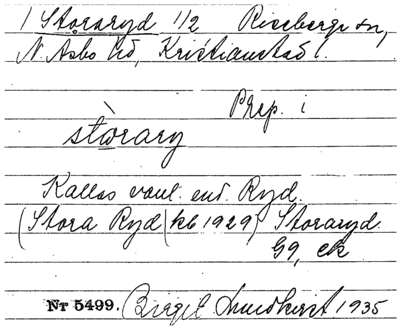 1 Storaryd 1/2 Riseberga sn,
N. Åsbo hd, Kristianstad l.
Prep. i
stòrary
Kallas vanl. end. Ryd.
(Stora Ryd (kb 1929) Storaryd
G9, ek
Nr 5499. Birgit Lundkvist, 1935